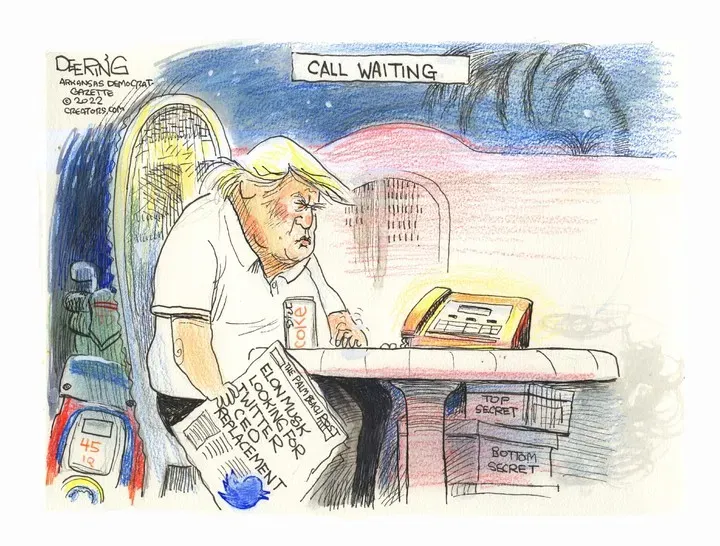 DEERING
ARKANSAS DEMOCRAT-
GAZETTE
© 2022
CREATORS.COM
CALL WAITING
DIET
COKE
THE PALM BEACH POST
ELON MUSK
LOOKING FOR
TWITTER
CEO
REPLACEMENT
TOP
SECRET
BOTTOM
SECRET
45
IQ